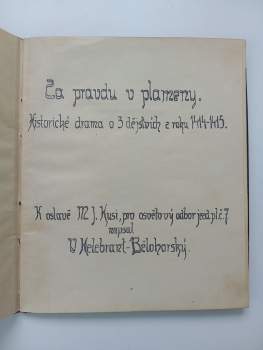 Za pravdu v plameny.
Historické drama o 3 dějstvích z roku 1414-1415.
K oslavě M J. Husi, pro osvětový odbor jezd.pl.č.7
napsal
V Helebrant-Bělohorský.